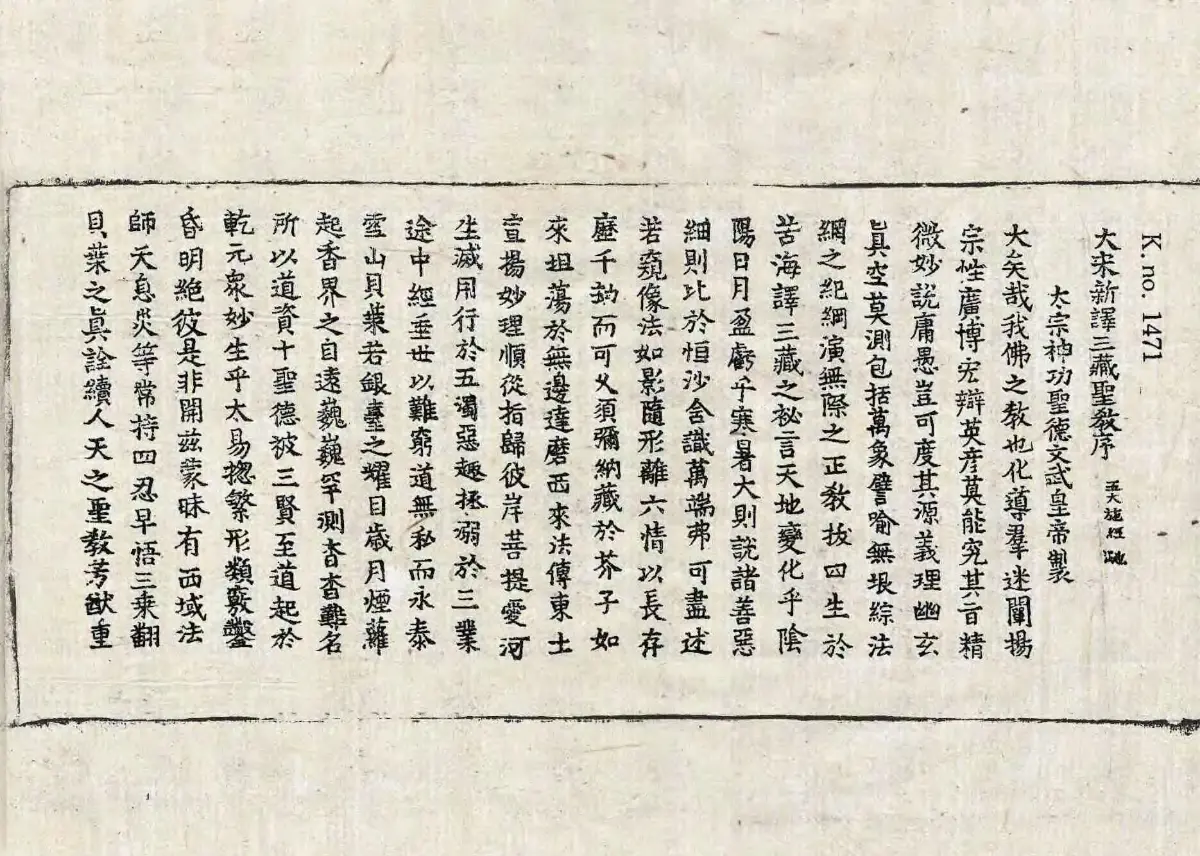 K. no. 1471
大宋新譯三藏聖教序
太宗神功聖德文武皇帝製
大矣哉我佛之教也化導羣迷闡揚
宗性廣博宏辯英彥莫能究其旨精
微妙說庸愚豈可度其源義理幽玄
眞空莫測包括萬象譬喻無垠綜法
網之紀綱演無際之正教拔四生於
苦海譯三藏之祕言天地變化乎陰
陽日月盈虧乎寒暑大則說諸善惡
細則比於恒沙含識萬端弗可盡述
若窺像法如影隨形離六情以長存
歷千劫而可久須彌納藏於芥子如
來坦蕩於無邊達磨西來法傳東土
宣揚妙理順從指歸彼岸菩提愛河
生滅用行於五濁惡趣拯溺於三業
途中經垂世以難窮道無私而永泰
雪山貝葉若銀臺之耀目歲月煙蘿
起香界之自遠巍巍罕測杳杳難名
所以道資十聖德被三賢至道起於
乾元衆妙生乎太易揔繁形類竅鑿
昏明絕彼是非開茲蒙昧有西域法
師天息災等常持四忍早悟三乘翻
貝葉之眞詮續人天之聖教芳猷重